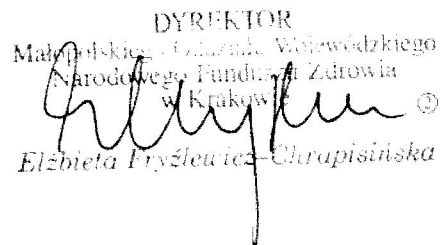 DYREKTOR
Małopolskiego Oddziału Wojewódzkiego
Narodowego Funduszu Zdrowia
w Krakowie
②
Elżbieta Fryźlewicz-Chrapisińska